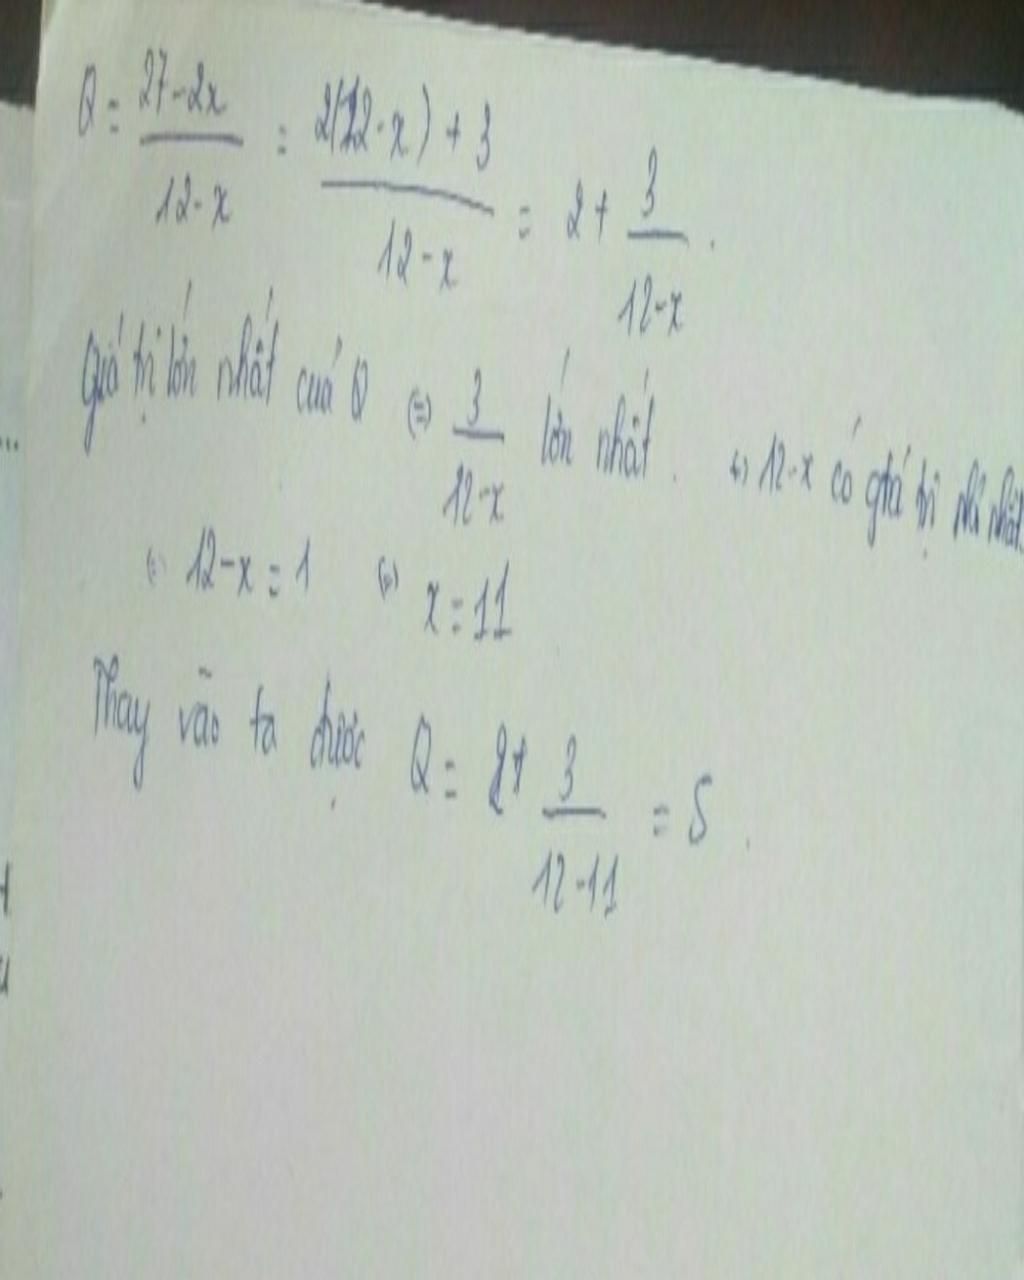 Q = \frac{27-2x}{12-x} = \frac{2(12-x)+3}{12-x} = 2 + \frac{3}{12-x}.
Giá trị lớn nhất cuả Q ⇔ \frac{3}{12-x} lớn nhất. ⇔ 12-x có giá trị nhỏ nhất
⇔ 12-x = 1 ⇔ x = 11
Thay vào ta được Q = 2+ \frac{3}{12-11} = 5.